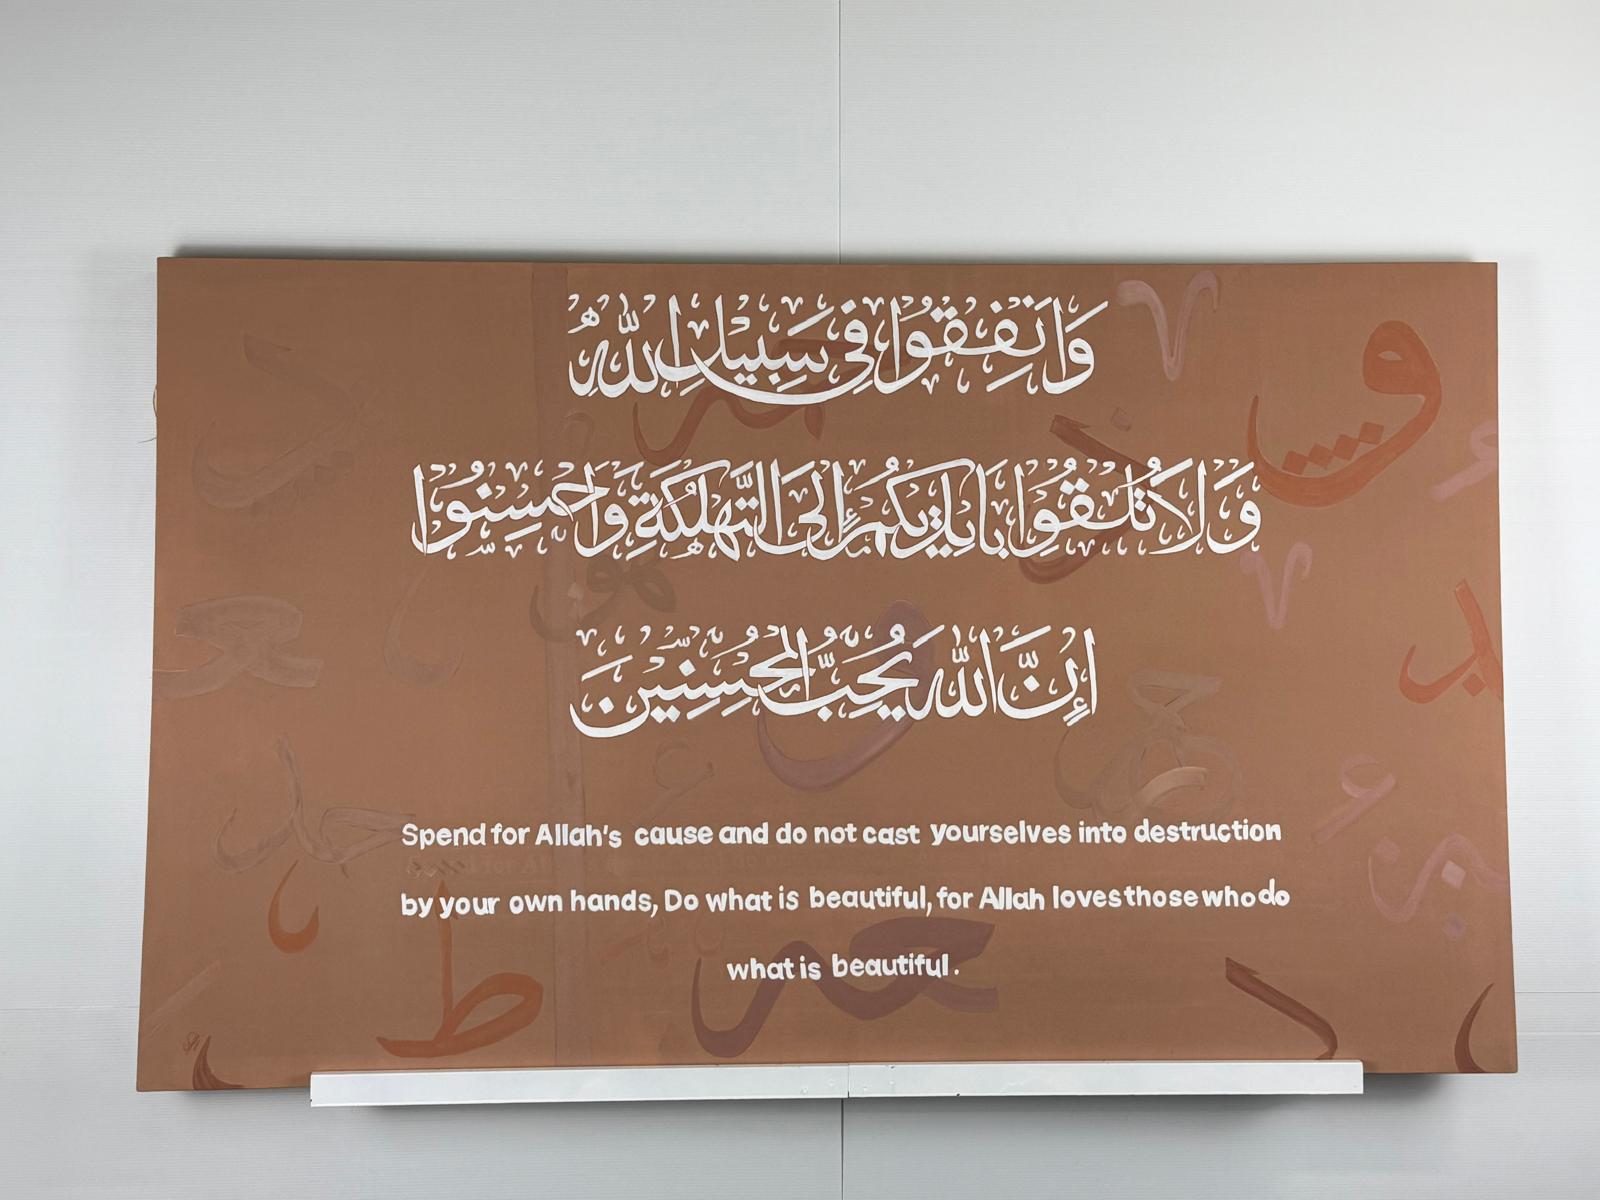 وَاَنْفِقُوا فِي سَبِيلِ اللهِ
وَلَا تُلْقُوا بِاَيْدِيكُمْ إِلَى التَّهْلُكَةِ وَاَحْسِنُوا
إِنَّ اللهَ يُحِبُّ الْمُحْسِنِينَ
Spend for Allah's cause and do not cast yourselves into destruction
by your own hands, Do what is beautiful, for Allah loves those who do
what is beautiful.